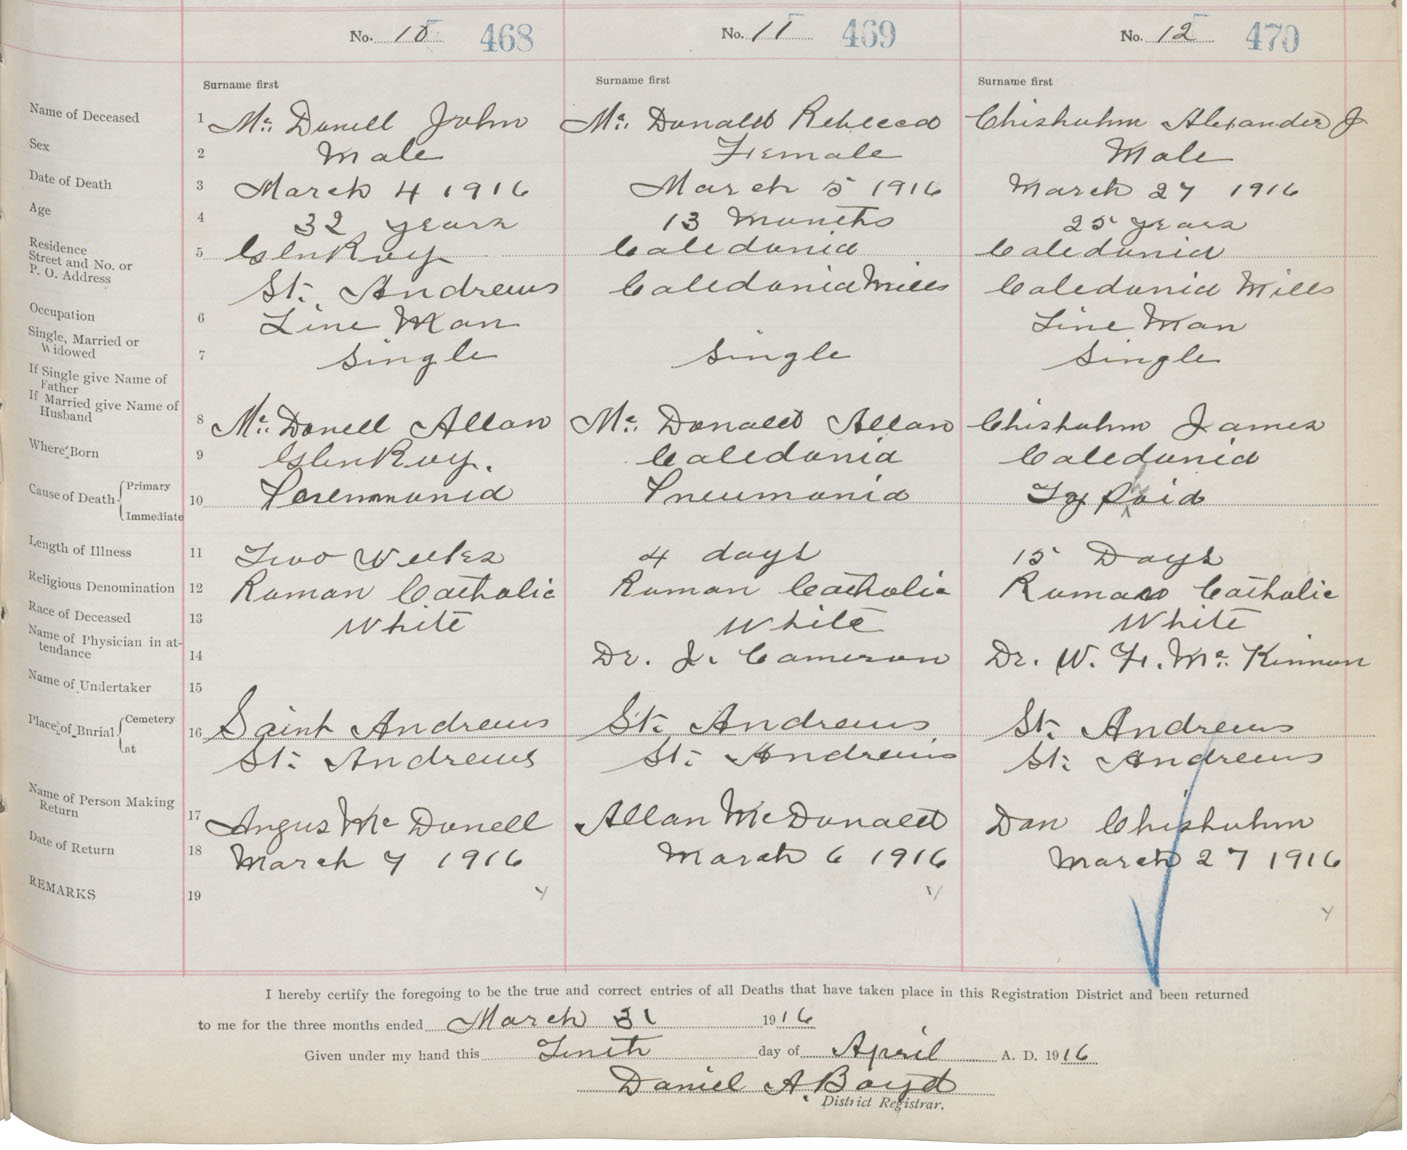 No. 10 468 No. 11 469 No. 12 470
Surname first Surname first Surname first
Name of Deceased 1 Mc Donell John Mc Donald Rebecca Chisholm Alexander J
Sex 2 Male Female Male
Date of Death 3 March 4 1916 March 5 1916 March 27 1916
Age 4 32 years 13 Months 25 years
Residence
Street and No. or 5 Glen Roy Caledonia Caledonia
P. O. Address St. Andrews Caledonia Mills Caledonia Mills
Occupation 6 Line Man Line Man
Single, Married or
Widowed 7 Single Single Single
If Single give Name of
Father
If Married give Name of
Husband 8 Mc Donell Allan Mc Donald Allan Chisholm James
Where Born 9 Glen Roy. Caledonia Caledonia
Cause of Death Primary
Immediate 10 Pneumonia Typhoid
Length of Illness 11 Two Weeks 4 days 15 Days
Religious Denomination 12 Roman Catholic Roman Catholic Roman Catholic
Race of Deceased 13 White White White
Name of Physician in at-
tendance 14 Dr. J. Cameron Dr. W. F. Mc Kinnon
Name of Undertaker 15
Place of Burial Cemetery 16 Saint Andrews St. Andrews St. Andrews
at St. Andrews St. Andrews St. Andrews
Name of Person Making
Return 17 Angus Mc Donell Allan McDonald Dan Chisholm
Date of Return 18 March 7 1916 March 6 1916 March 27 1916
REMARKS 19
I hereby certify the foregoing to be the true and correct entries of all Deaths that have taken place in this Registration District and been returned
to me for the three months ended March 31 1916
Given under my hand this Tenth day of April A. D. 1916
Daniel A. Boyd
District Registrar.